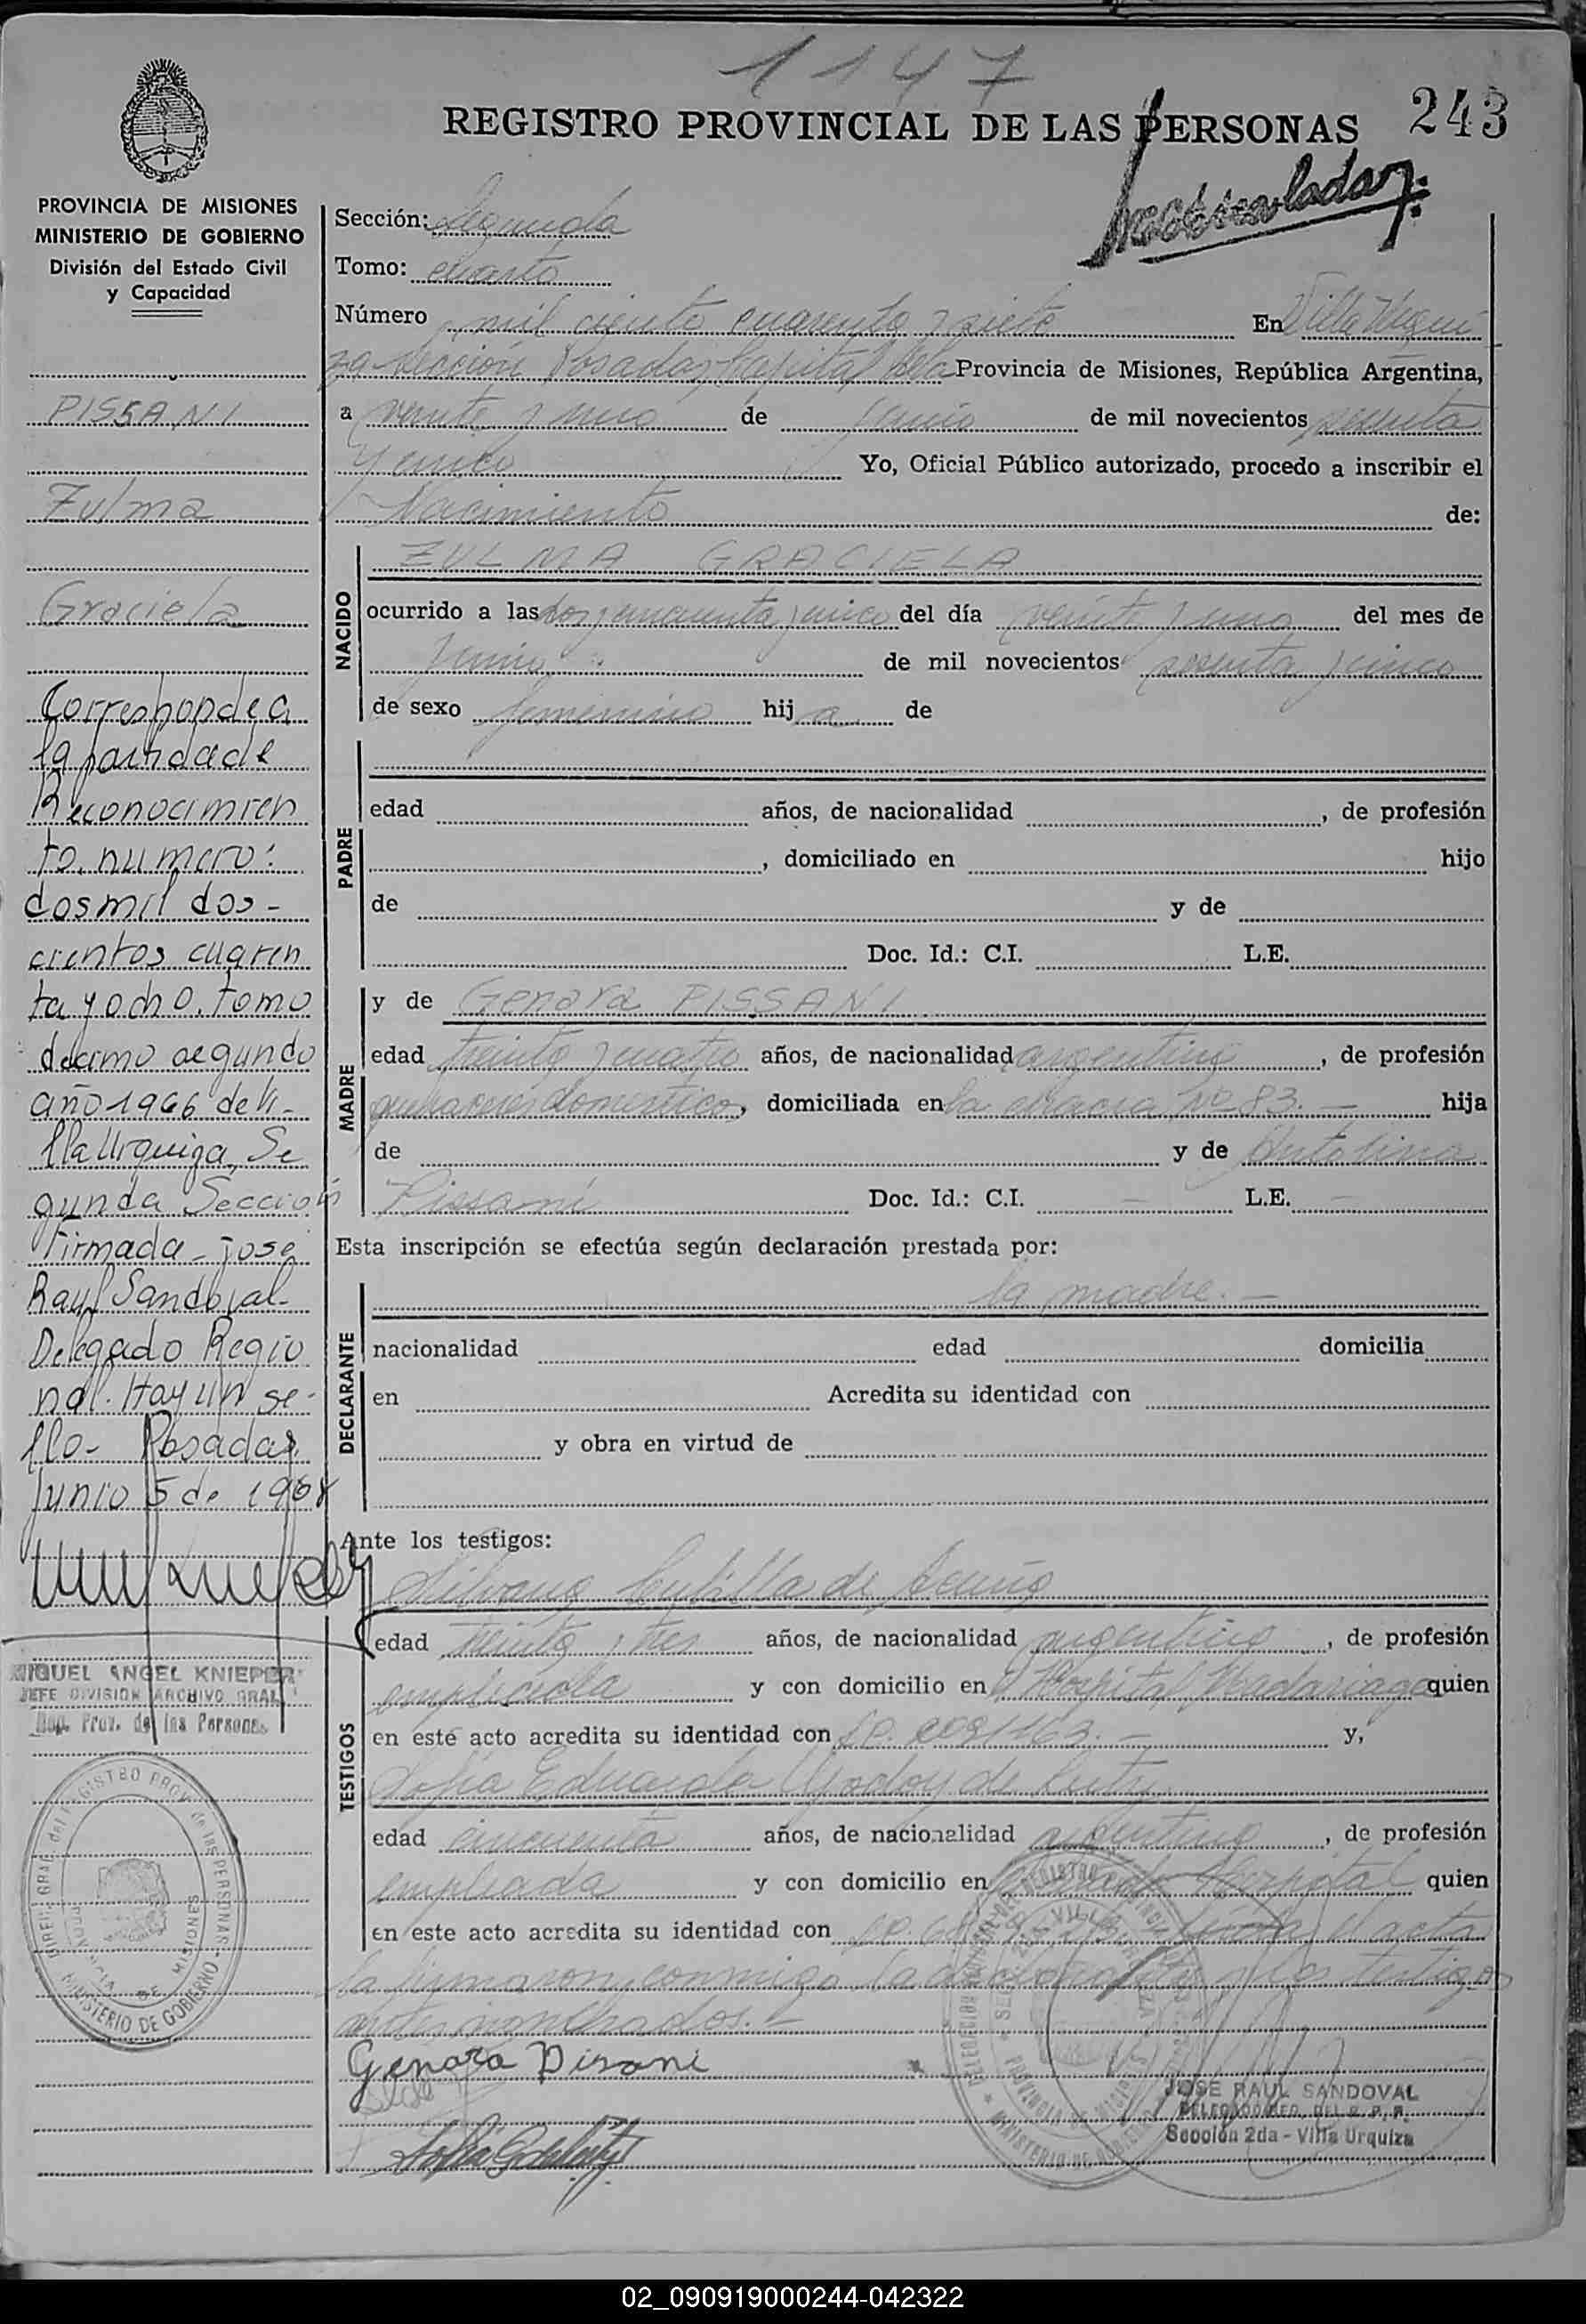 1147
REGISTRO PROVINCIAL DE LAS PERSONAS 243
PROVINCIA DE MISIONES
MINISTERIO DE GOBIERNO
División del Estado Civil
y Capacidad
PISSANI
Zulma
Graciela
Corresponde a
la partida de
Reconocimien
to, numero:
dosmil dos-
cientos cuaren
ta y ocho. Tomo
decimo segundo
año 1966 de Vi-
lla Urquiza, Se
gunda Sección
Firmada - José
Raul Sandoval-
Delegado Regio
nal. Hay un se-
llo- Posadas,
Junio 5 de 1968
MIGUEL ANGEL KNIEPER
JEFE DIVISION ARCHIVO GRAL
Reg. Prov. de las Personas
Sección: Segunda
Tomo: cuarto
Número mil ciento cuarenta y siete En Villa Urqui
za Sección Posadas, Capital de la Provincia de Misiones, República Argentina,
a veinte y uno de junio de mil novecientos sesenta
y cinco Yo, Oficial Público autorizado, procedo a inscribir el
Nacimiento de:
NACIDO
ZULMA GRACIELA
ocurrido a las dos y cincuenta y cinco del día veinte y uno del mes de
junio de mil novecientos sesenta y cinco
de sexo femenino hij a de
PADRE
edad años, de nacionalidad , de profesión
, domiciliado en hijo
de y de
Doc. Id.: C.I. L.E.
MADRE
y de Genara PISSANI
edad treinta y cuatro años, de nacionalidad argentina , de profesión
quehaceres domesticos, domiciliada en la chacra Nº 83. - hija
de y de Antolina
Pissani Doc. Id.: C.I. - L.E. -
Esta inscripción se efectúa según declaración prestada por:
DECLARANTE
la madre. -
nacionalidad edad domicilia
en Acredita su identidad con
y obra en virtud de
Ante los testigos:
TESTIGOS
Silvana de
edad treinta y tres años, de nacionalidad argentina , de profesión
empleada y con domicilio en el Hospital Madariaga quien
en este acto acredita su identidad con y,
Sofia Eduarda Godoy de
edad cincuenta años, de nacionalidad argentina , de profesión
empleada y con domicilio en Hospital quien
en este acto acredita su identidad con leída el acta
la firmaron conmigo la y los testigos
antes nombrados. -
Genara Pisani
JOSE RAUL SANDOVAL
DELEGADO REG. DEL R. P. P.
Sección 2da - Villa Urquiza
MINISTERIO DE GOBIERNO
PROVINCIA DE MISIONES
02_090919000244-042322